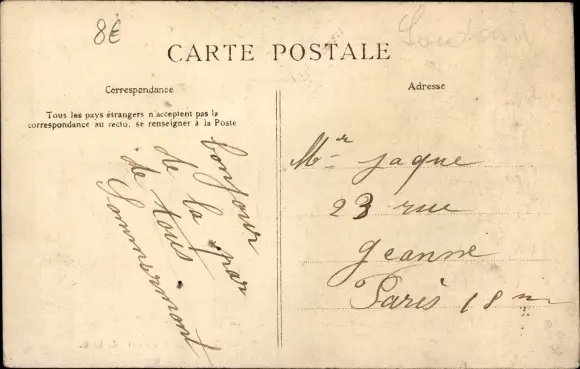 8€
CARTE POSTALE
Correspondance
Tous les pays étrangers n'acceptent pas la
correspondance au recto, se renseigner à la Poste
bonjour
de la par
de tous
Sommermont
Adresse
Mr jaque
23 rue
geanne
Paris 18m